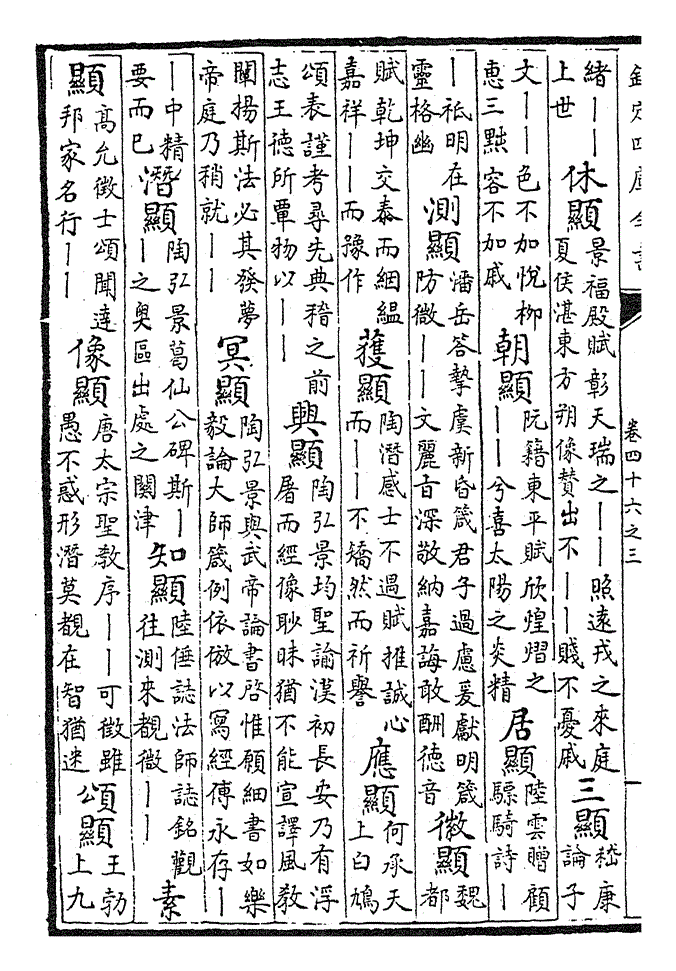 欽定四庫全書
卷四十六之三
緒——上世休顯景福殿賦彰天瑞之——照遠戎之來庭夏侯湛東方朔像賛出不——賤不憂戚三顯嵇康論子
文——色不加悅柳惠三黜容不加戚朝顯阮籍東平賦欣煌熠之——兮喜太陽之炎精居顯陸雲贈顧驃騎詩—
—祇明在靈格幽測顯潘岳答摯虞新昏箴君子過慮爰獻明箴防微——文麗㫖深敬納嘉誨敢酬德音微顯魏都
賦乾坤交泰而絪縕嘉祥——而豫作獲顯陶潛感士不過賦推誠心而——不矯然而祈譽應顯何承天上白鳩
頌表謹考尋先典稽之前志王德所覃物以——興顯陶弘景均聖論漢初長安乃有浮屠而經像眇昧猶不能宣譯風教
闡揚斯法必其發夢帝庭乃稍就——冥顯陶弘景與武帝論書啓惟願細書如樂毅論大師箴例依倣以寫經傳永存—
—中精要而已潛顯陶弘景葛仙公碑斯——之奥區出處之關津知顯陸倕誌法師誌銘觀往測來覩微——素
顯高允徵士頌聞達邦家名行——像顯唐太宗聖教序——可徵雖愚不惑形潛莫覩在智猶迷頌顯王勃上九